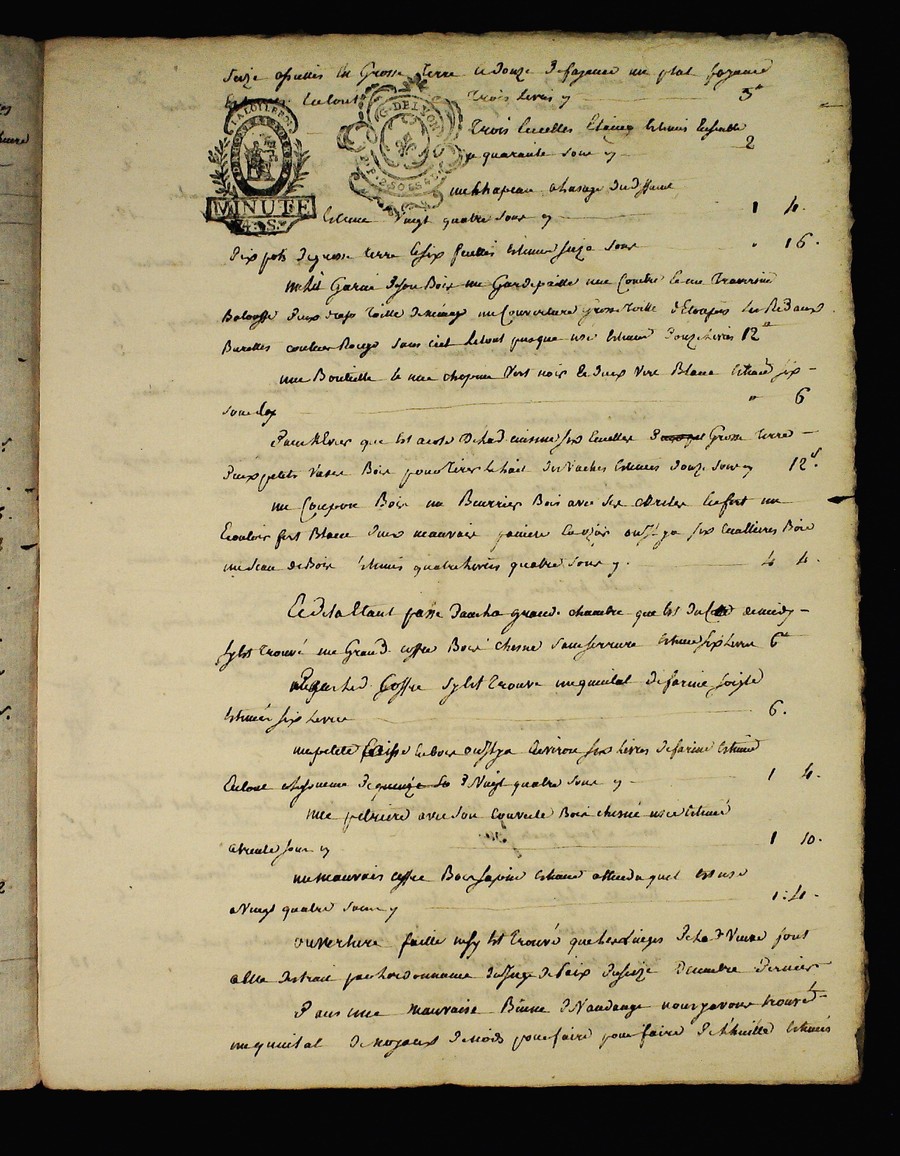 Seize assiettes En Grosse terre et douze de fayance un plat fayance
Estimés Letout trois Livres y 3#
LA LOI LE ROI
G. DE LYON
MINUTE
4. S.
trois Ecuelles Etaing Estimés Ensemble
a quarante sous y 2
un chapeau a lusage du deffunt
Estimé Vingt quatre sous y 1 4.
dix pots de grosse terre et six Estimés seize sous " 16.
un Lit Garni de son Bois un Gardepaille une Coutre et une traversine
Balouffe deux draps toille de ménage un Couverture Grosse toille d'Etoupes Les Rideaux
Burattes couleur Rouge sans ciel Letout presque usé Estimé douze Livres 12#
une Bouteille et une chopine Vert noir et deux Vere Blanc Estimé six
sous Les " 6
que Est a coté de Lad. cuisine six Ecuelles Grosse terre
deux petits Vases Bois pour tirer Le Lait des Vaches Estimés douze sous y 12s.
un Coupon Bois un Beurrier Bois avec ses Cercles En fert un
Ecouloir fert Blanc deux mauvais paniers ou il y a six Cuillieres Bois
un seau de Bois Estimés quatre Livres quatre sous y. 4 4.
Et de la Etant passé dans La grande chambre que Est du Coté de midy
sy Est trouvé un Grand coffre Bois chesne sans serrure Estimé six Livres 6#
Led. Coffre sy Est trouvé un quintal de farine soigle
Estimés six Livres 6.
une petite Caisse En bois ou il y a Environ six Livres de farine Estimé
Le tout Ensemble de Vingt quatre sous y 1 4.
une petriere avec son couvercle Bois chesne usée Estimé
a trente sous y 1 10.
un mauvais coffre Bois sapin Estimé attendu quil Est usé
a Vingt quatre sous y 1:4.
ouverture faitte il ny Est trouvé que Les Linges de La de. Veuve sont
a Elle distrait par Lordonnance du Juge de Paix du seize decembre dernier
dans une mauvaise Benne de Vandange nous y avons trouvé
un quintal de noyaux de noix pour faire pour faire de Lhuille Estimés